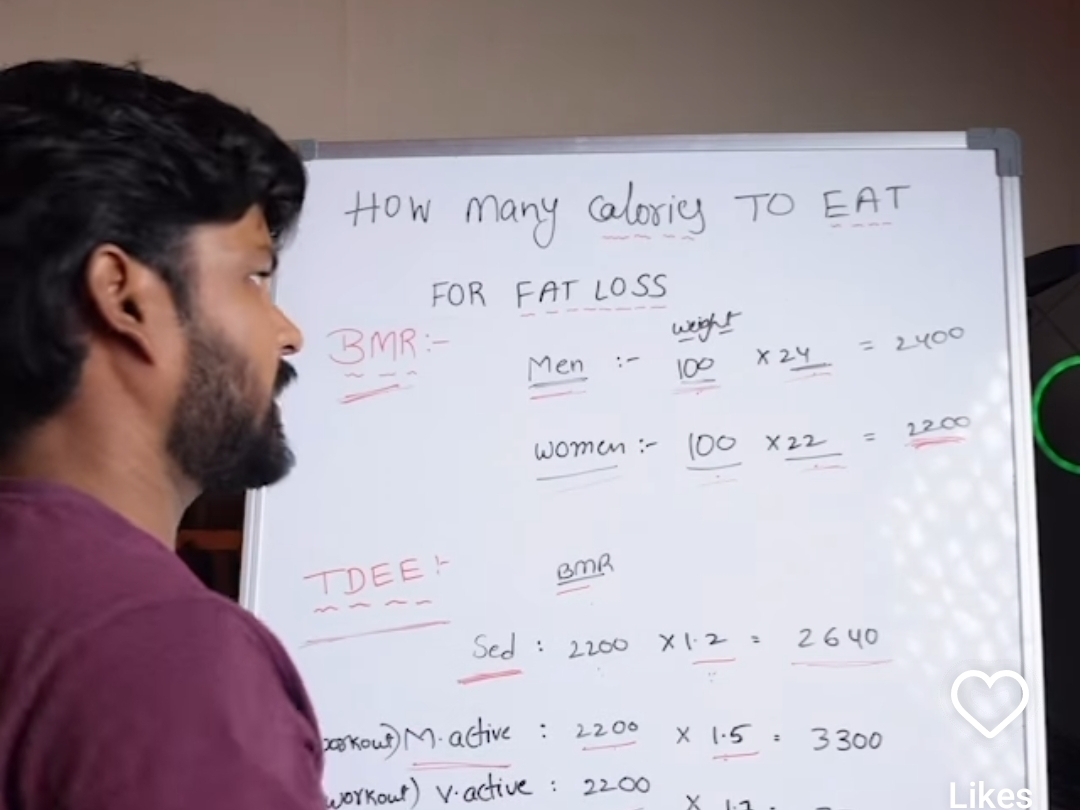 HOW many calories TO EAT
FOR FAT LOSS
weight
BMR:- Men :- 100 x 24 = 2400
women :- 100 x 22 = 2200
TDEE:- BMR
Sed : 2200 x 1.2 = 2640
workout) M.active : 2200 x 1.5 = 3300
workout) V.active : 2200 x
Likes